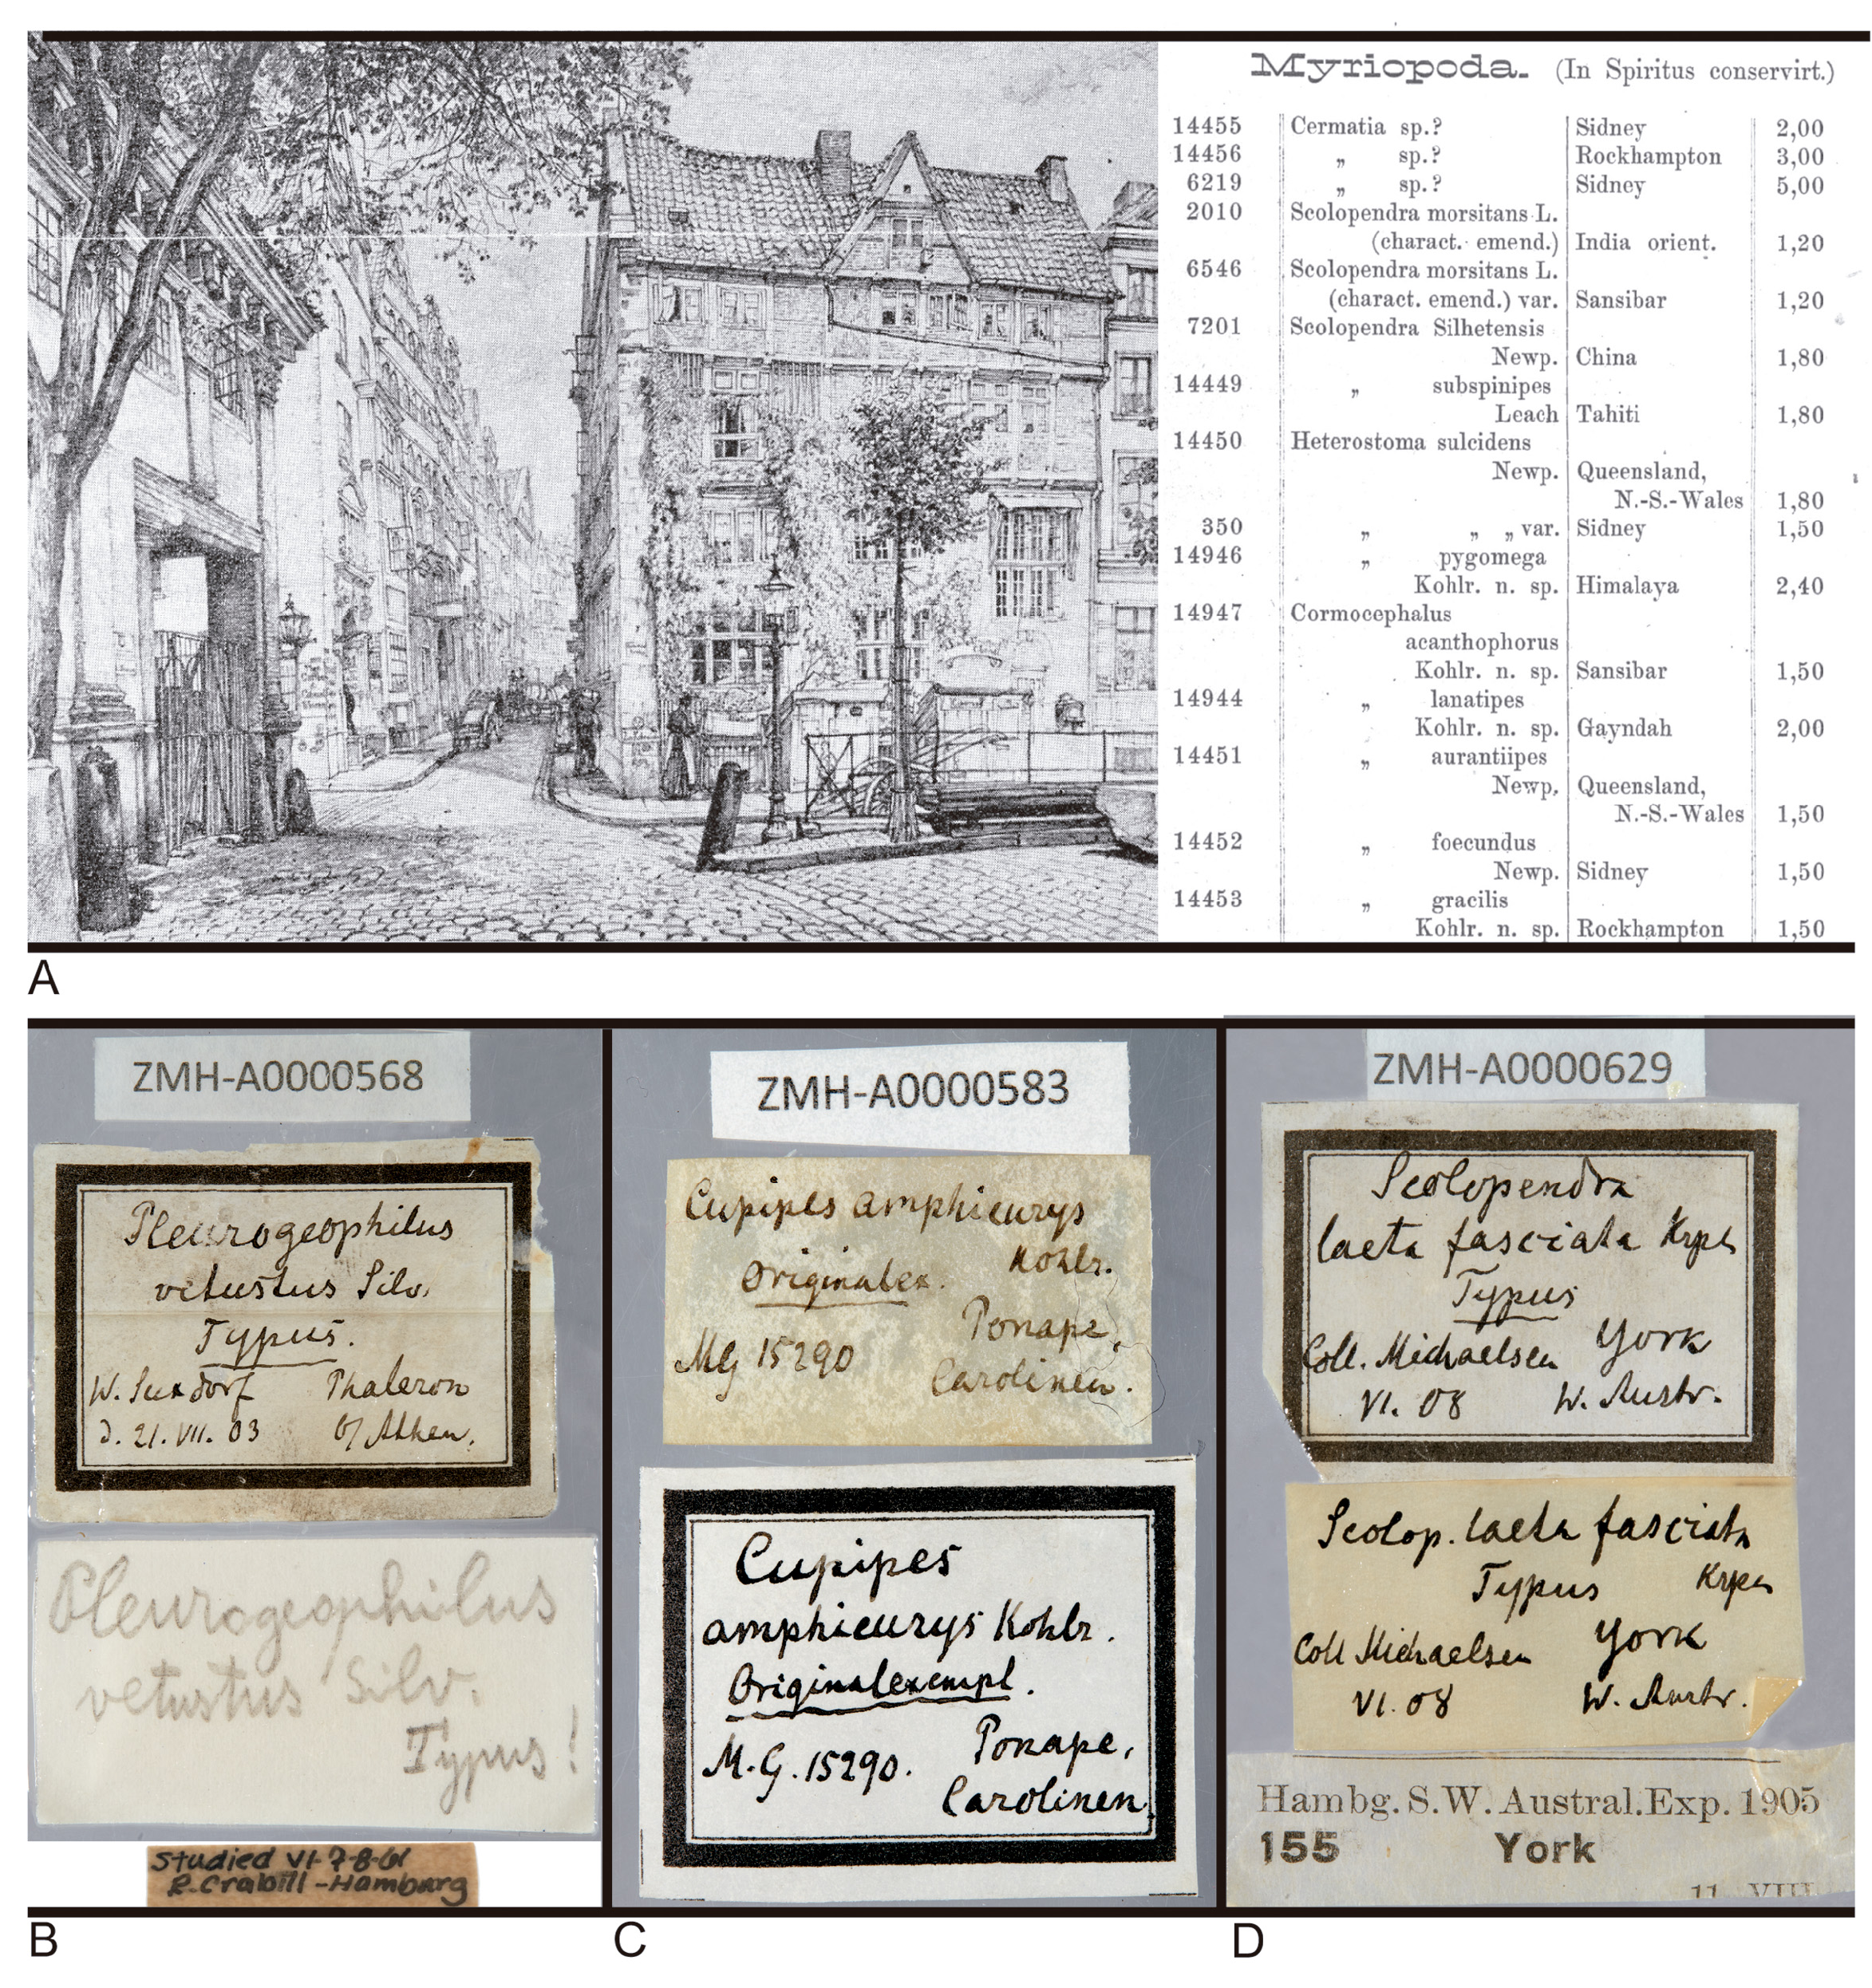 Myriopoda. (In Spiritus conservirt.)
14455 Cermatia sp.? Sidney 2,00
14456 „ sp.? Rockhampton 3,00
6219 „ sp.? Sidney 5,00
2010 Scolopendra morsitans L.
(charact. emend.) India orient. 1,20
6546 Scolopendra morsitans L.
(charact. emend.) var. Sansibar 1,20
7201 Scolopendra Silhetensis
Newp. China 1,80
14449 „ subspinipes
Leach Tahiti 1,80
14450 Heterostoma sulcidens
Newp. Queensland,
N.-S.-Wales 1,80
350 „ „ „ var. Sidney 1,50
14946 „ pygomega
Kohlr. n. sp. Himalaya 2,40
14947 Cormocephalus
acanthophorus
Kohlr. n. sp. Sansibar 1,50
14944 „ lanatipes
Kohlr. n. sp. Gayndah 2,00
14451 „ aurantiipes
Newp. Queensland,
N.-S.-Wales 1,50
14452 „ foecundus
Newp. Sidney 1,50
14453 „ gracilis
Kohlr. n. sp. Rockhampton 1,50
A
ZMH-A0000568
Pleurogeophilus
vetustus Silv.
Typus.
W. Suxdorf Phaleron
d. 21. VII. 03 b/ Athen.
Pleurogeophilus
vetustus Silv.
Typus!
Studied VI-7-8-61
R. Crabill-Hamburg
B
ZMH-A0000583
Cupipes amphieurys
Kohlr.
Originalex.
Ponape,
MG 15290
Carolinen.
Cupipes
amphieurys Kohlr.
Originalexempl.
M.G. 15290. Ponape,
Carolinen.
C
ZMH-A0000629
Scolopendra
laeta fasciata Krpln
Typus
Coll. Michaelsen York
VI. 08 W. Austr.
Scolop. laeta fasciata
Typus Krpln
Coll Michaelsen York
VI. 08 W. Austr.
Hambg. S.W. Austral. Exp. 1905
155 York
11 VIII
D